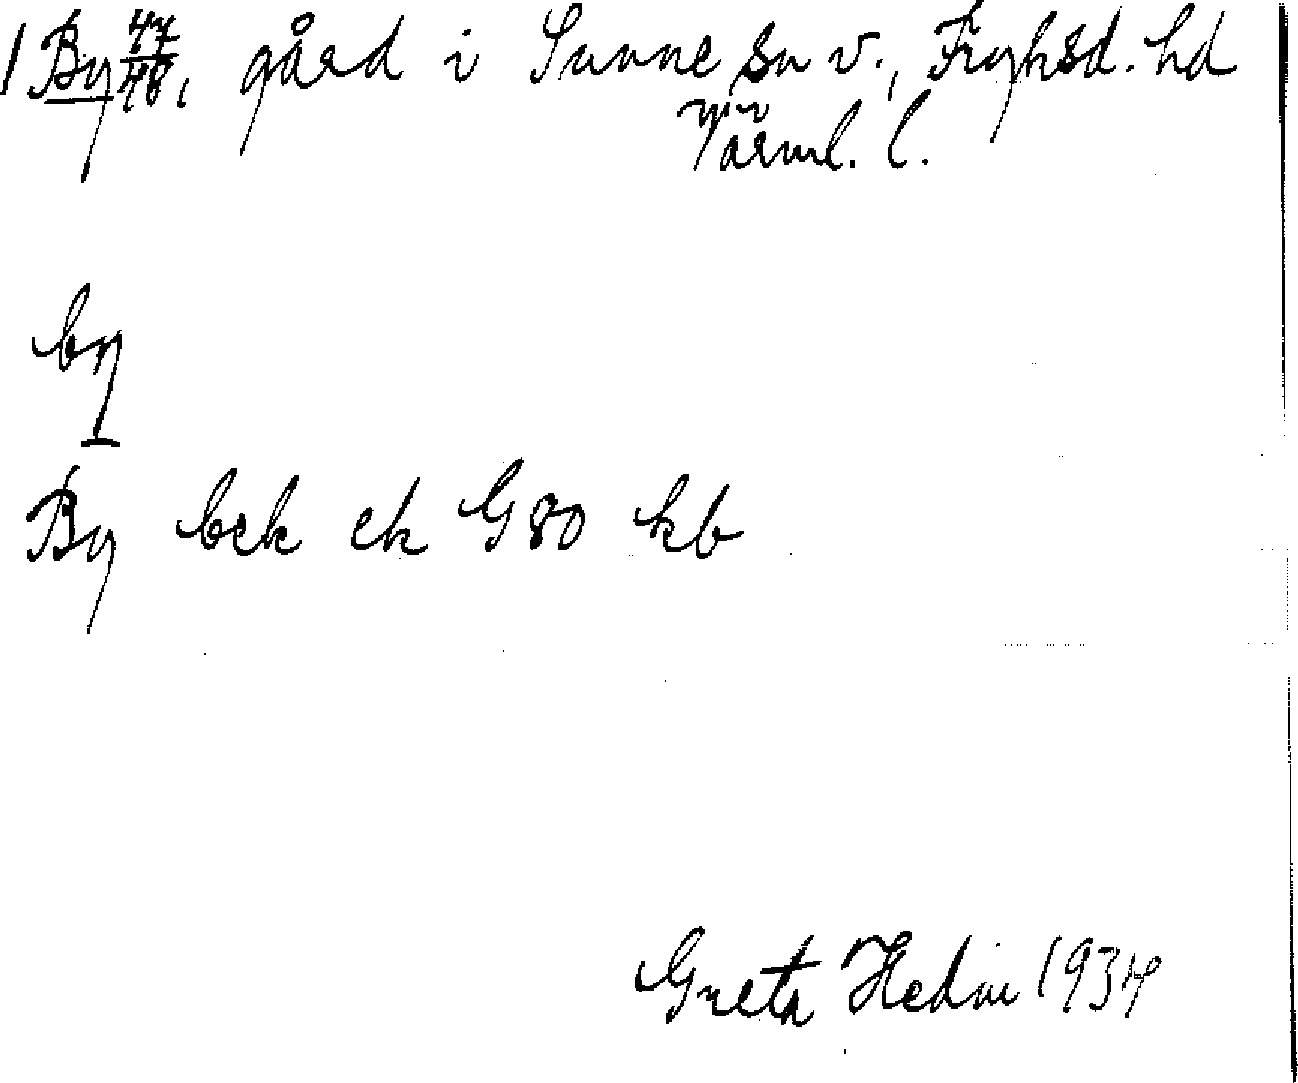 1 By 47/48, gård i Sunne sn v., Fryksd. hd
Värml. l.
by
By bek ek G 80 kb
Greta Hedin 1934